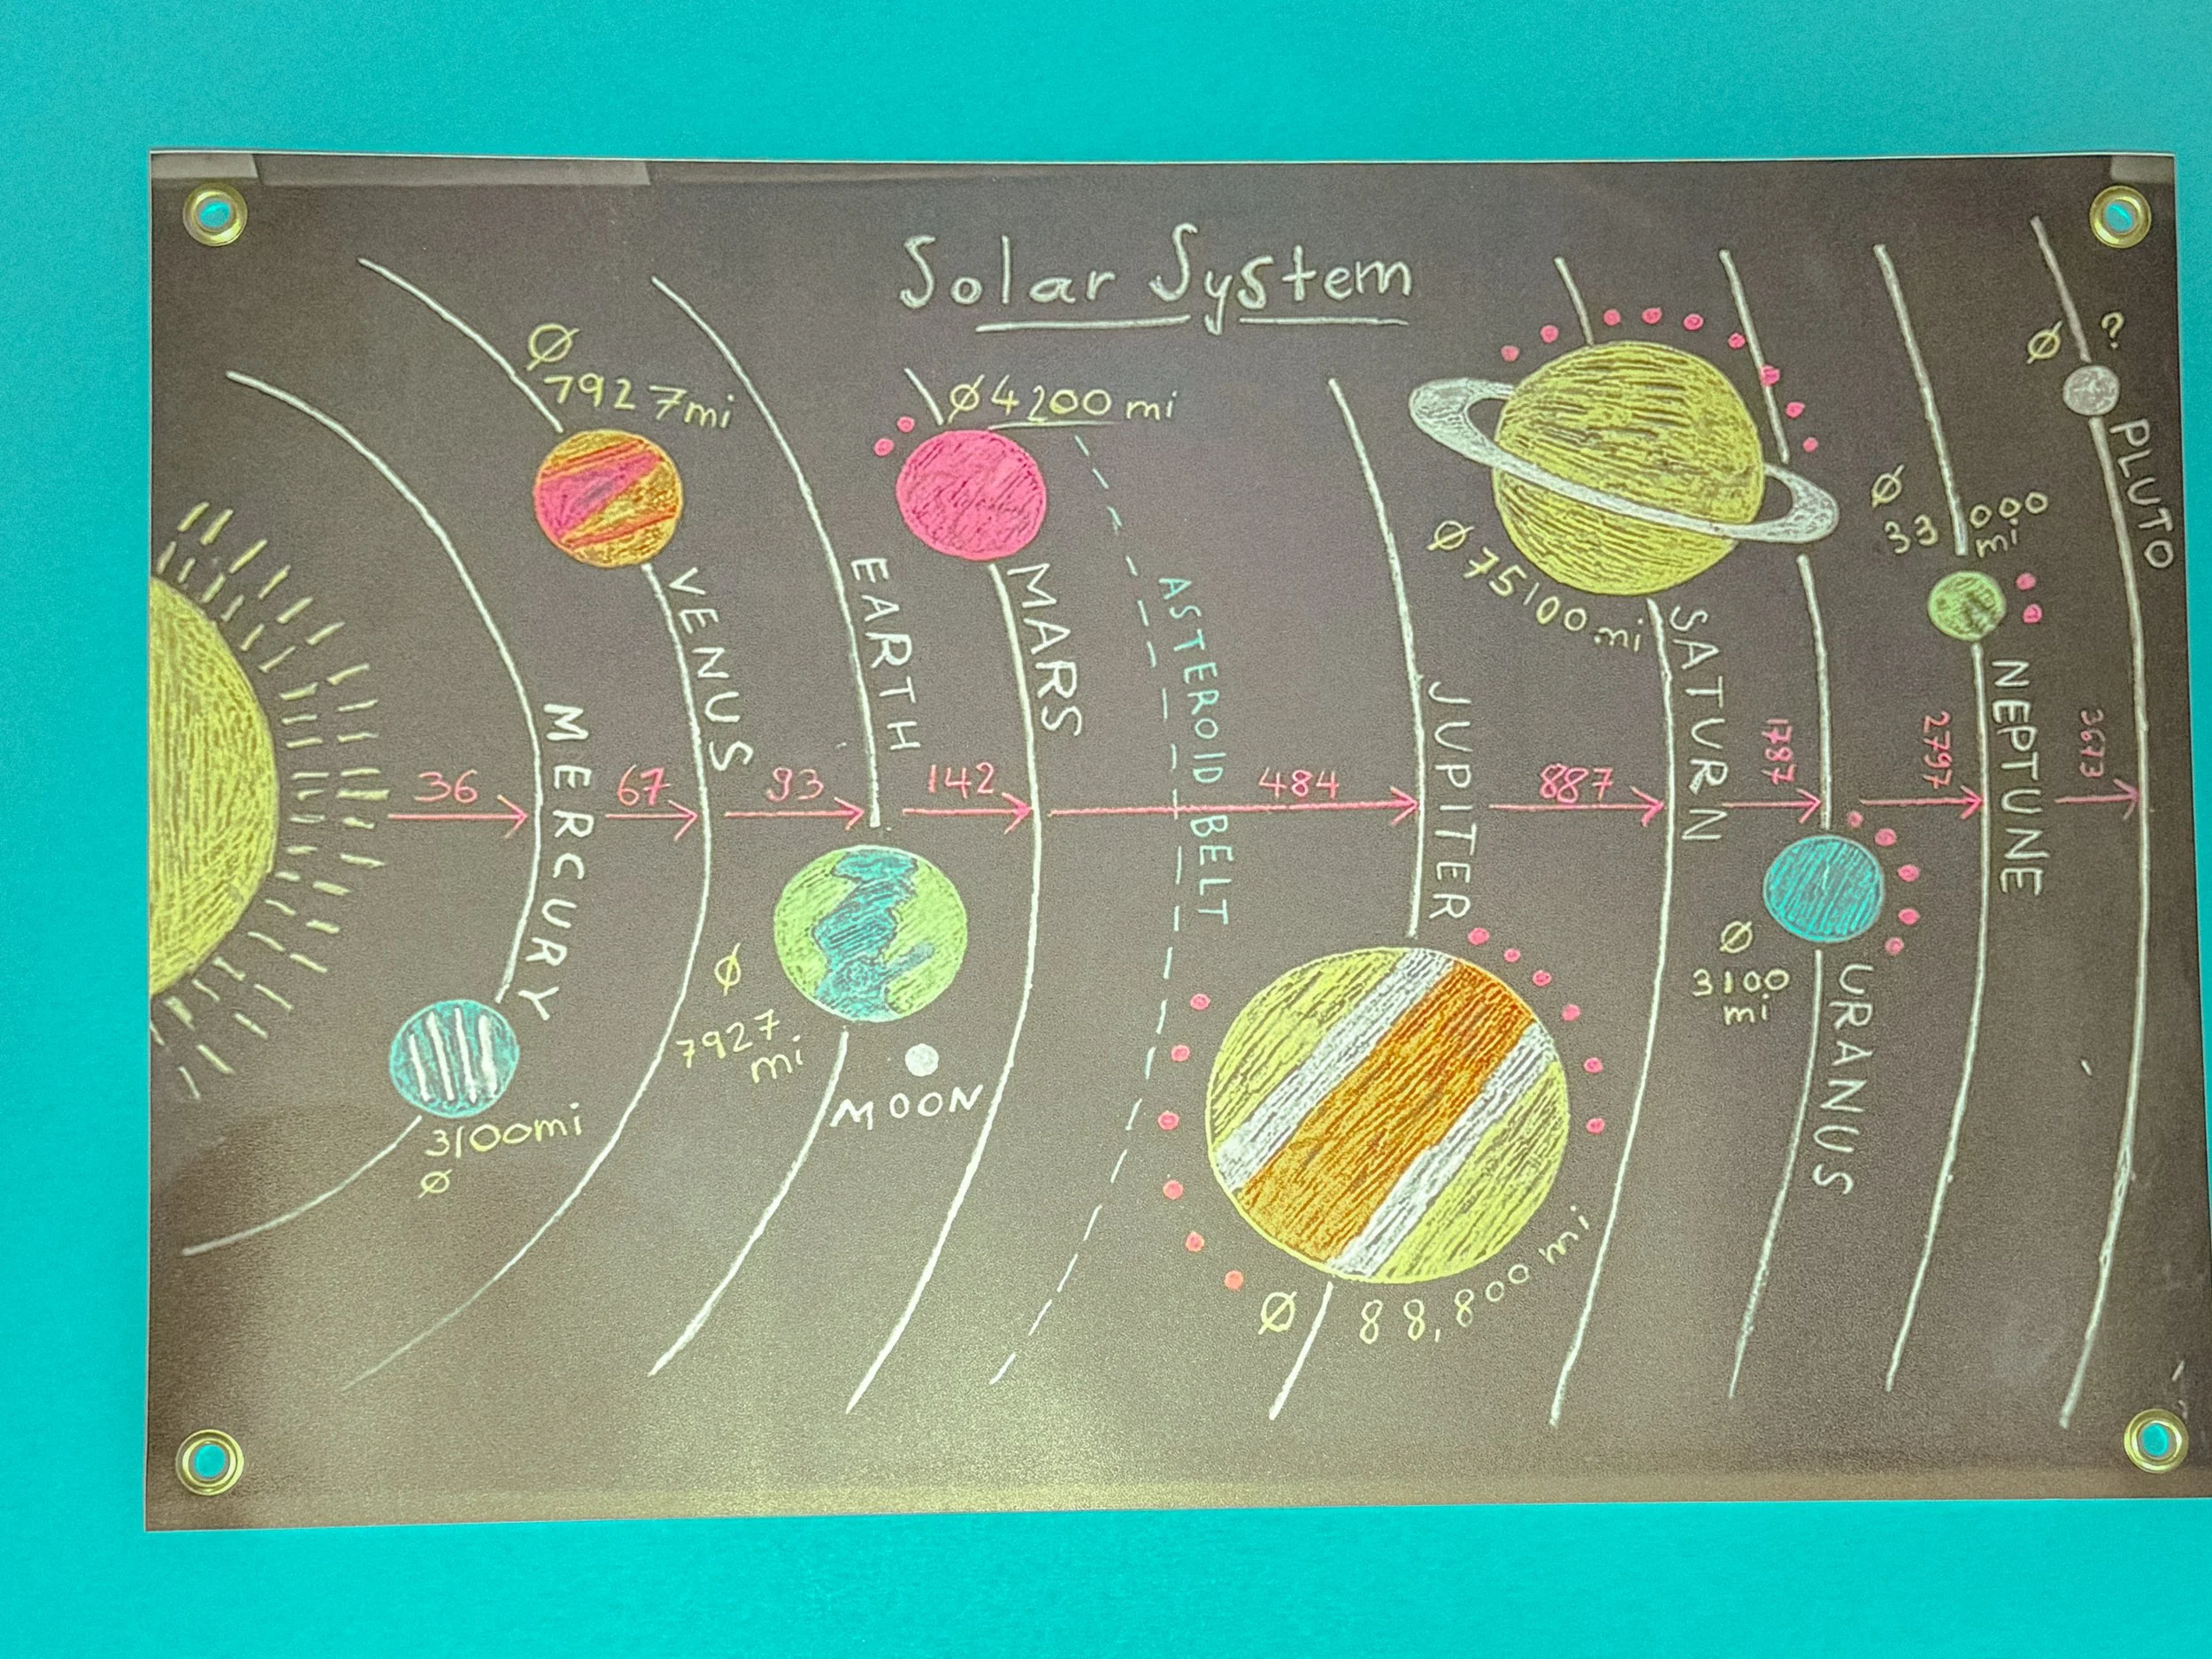 Solar System
Ø
7927mi
Ø4200 mi
Ø ?
PLUTO
Ø
33 000
mi
Ø 75100 mi
VENUS
EARTH
MARS
ASTEROID BELT
SATURN
NEPTUNE
MERCURY
JUPITER
36
67
93
142
484
887
1787
2797
3673
Ø
7927
mi
MOON
Ø
3100
mi
URANUS
3100mi
Ø
Ø 88,800 mi